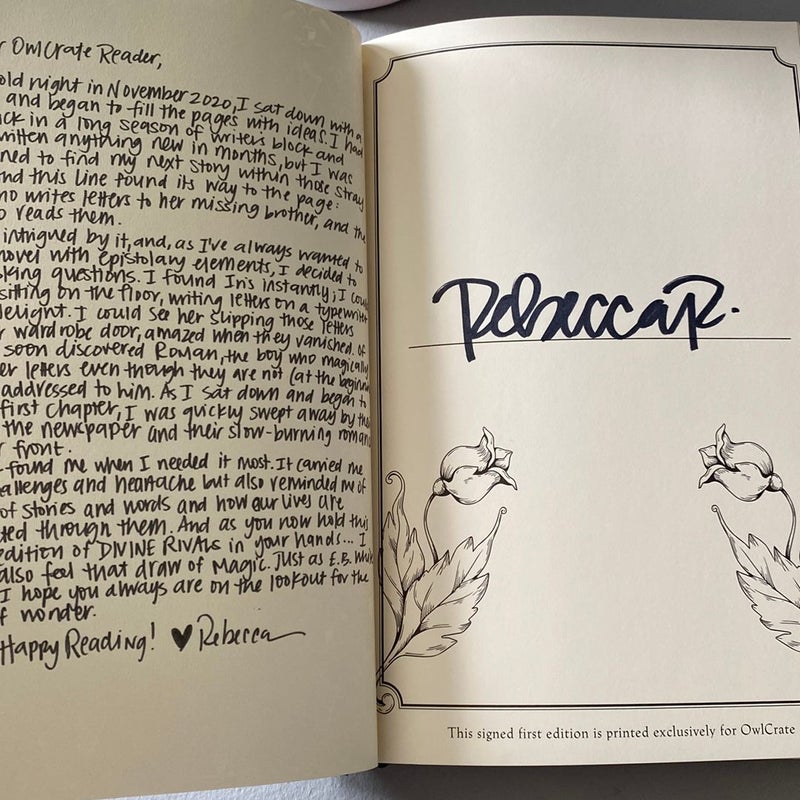 r OwlCrate Reader,
old night in November 2020, I sat down with a
and began to fill the pages with ideas. I had
ck in a long season of writer's block and
written anything new in months, but I was
ned to find my next story within those stray
nd this line found its way to the page:
ho writes letters to her missing brother, and the
o reads them.
intrigued by it, and, as I've always wanted to
novel with epistolary elements, I decided to
king questions. I found Iris instantly; I cou
sitting on the floor, writing letters on a typewrit
delight. I could see her slipping those letters
r wardrobe door, amazed when they vanished. Of
soon discovered Roman, the boy who magically
er letters even though they are not (at the beginn
addressed to him. As I sat down and began to
first chapter, I was quickly swept away by the
the newspaper and their slow-burning roman
r front.
found me when I needed it most. It carried me
allenges and heartache but also reminded me of
of stories and words and how our lives are
ted through them. And as you now hold this
edition of DIVINE RIVALS in your hands... I
also feel that draw of magic. Just as E.B. White
I hope you always are on the lookout for the
f wonder.
Happy Reading! ♥ Rebecca
Rebecca R.
This signed first edition is printed exclusively for OwlCrate